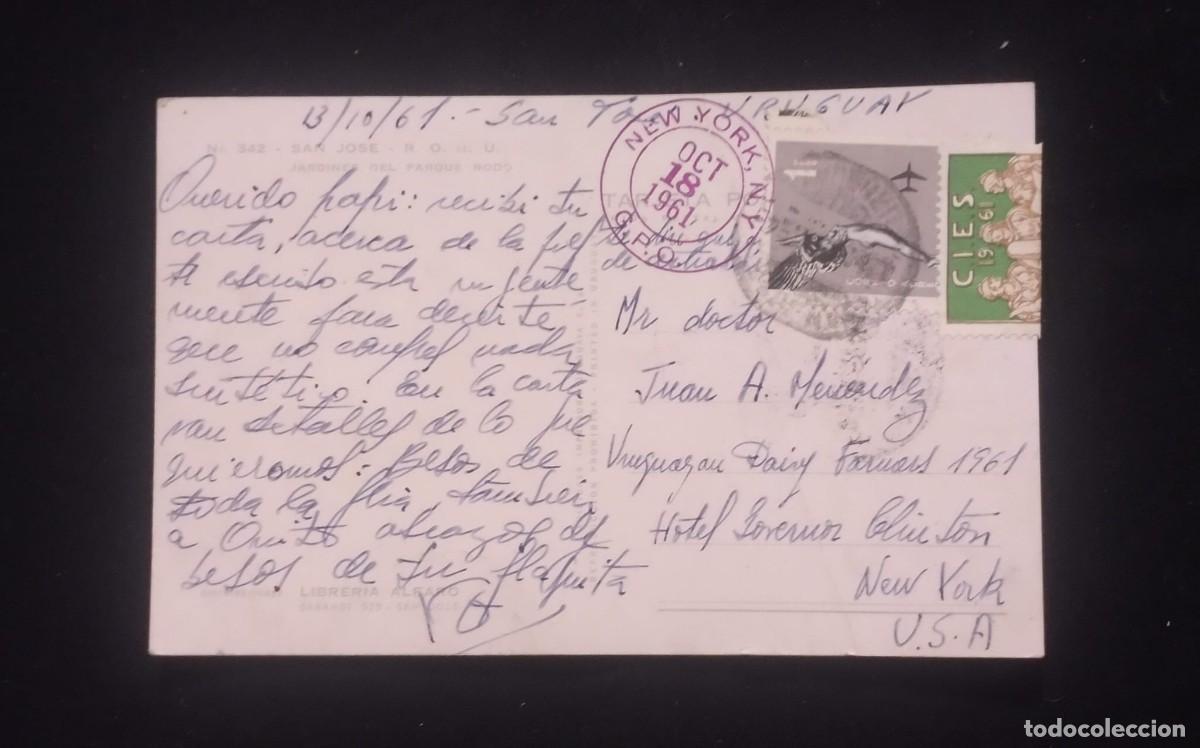 13/10/61.- San José URUGUAY
No. 342 - SAN JOSE - R. O. del U.
JARDINES DEL PARQUE RODO
Querido papi: recibi tu
carta, acerca de la
Te escribo esta urgente
mente para decirte
que no compres nada
sintético. En la carta
van detalles de lo que
queremos. Besos de
toda la flia también
a abrazos y
besos de tu flaquita
LIBRERIA ALFARO
SARANDI 529 - SAN JOSE
NEW YORK, N.Y.
OCT
18
1961
G.P.O.
TARJETA POSTAL
C.I.E.S.
1961
Mr doctor
Juan A. Menéndez
Uruguayan Dairy Farmars 1961
Hotel Governor Clinton
New York
U.S.A
todocoleccion